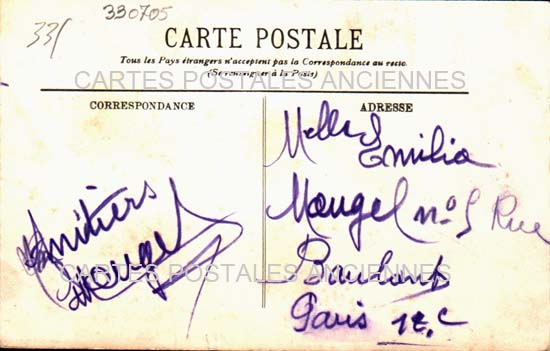 330705
335
CARTE POSTALE
Tous les Pays étrangers n'acceptent pas la Correspondance au recto.
(Se renseigner à la Poste)
CARTES POSTALES ANCIENNES
CORRESPONDANCE
ADRESSE
Melle Emilia
Mougel nº 5 Rue
Paris 12. e
Amitiers
Mougel
CARTES POSTALES ANCIENNES